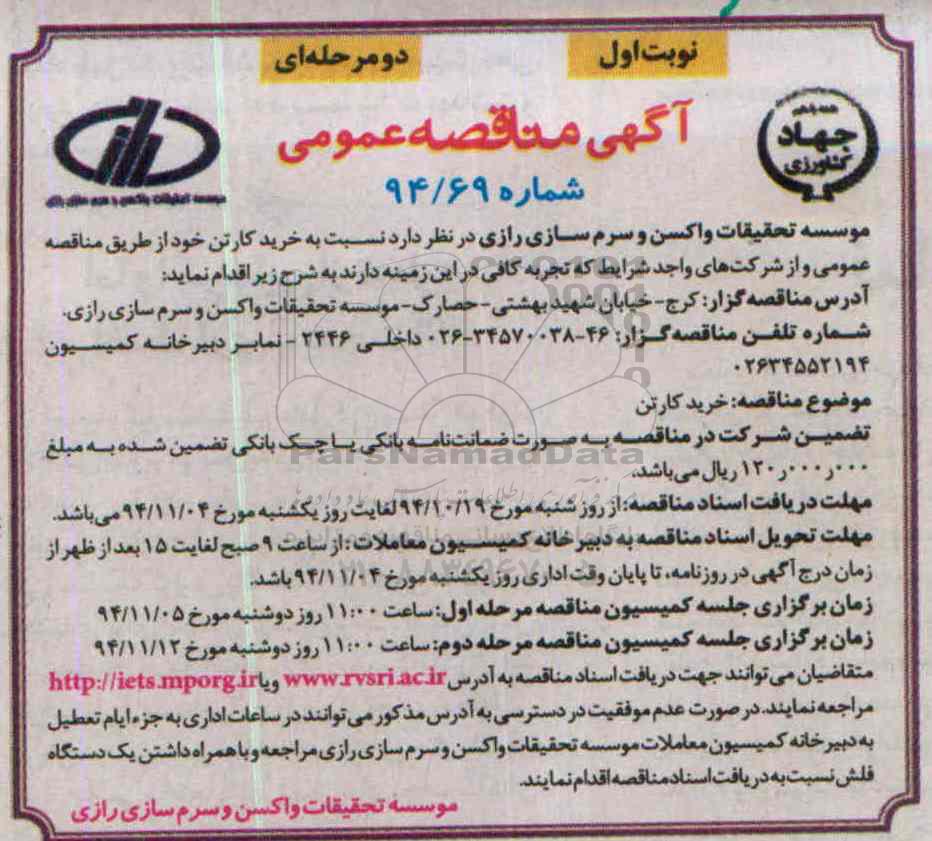 نوبت اول
دو مرحله‌ای
جهاد
کشاورزی
آگهی مناقصه عمومی
شماره ۹۴/۶۹
موسسه تحقیقات واکسن و سرم سازی رازی
موسسه تحقیقات واکسن و سرم سازی رازی در نظر دارد نسبت به خرید کارتن خود از طریق مناقصه
عمومی و از شرکت‌های واجد شرایط که تجربه کافی در این زمینه دارند به شرح زیر اقدام نماید:
آدرس مناقصه‌گزار: کرج- خیابان شهید بهشتی- حصارک- موسسه تحقیقات واکسن و سرم سازی رازی.
شماره تلفن مناقصه‌گزار: ۴۶-۳۴۵۷۰۰۳۸-۰۲۶ داخلی ۲۴۴۶ - نمابر دبیرخانه کمیسیون
۰۲۶۳۴۵۵۲۱۹۴
موضوع مناقصه: خرید کارتن
تضمین شرکت در مناقصه به صورت ضمانت‌نامه بانکی یا چک بانکی تضمین شده به مبلغ
۱۲۰٫۰۰۰٫۰۰۰ ریال می‌باشد.
ParsNamadData
مهلت دریافت اسناد مناقصه: از روز شنبه مورخ ۹۴/۱۰/۱۹ لغایت روز یکشنبه مورخ ۹۴/۱۱/۰۴ می‌باشد.
مهلت تحویل اسناد مناقصه به دبیرخانه کمیسیون معاملات: از ساعت ۹ صبح لغایت ۱۵ بعد از ظهر از
زمان درج آگهی در روزنامه، تا پایان وقت اداری روز یکشنبه مورخ ۹۴/۱۱/۰۴ باشد.
زمان برگزاری جلسه کمیسیون مناقصه مرحله اول: ساعت ۱۱:۰۰ روز دوشنبه مورخ ۹۴/۱۱/۰۵
زمان برگزاری جلسه کمیسیون مناقصه مرحله دوم: ساعت ۱۱:۰۰ روز دوشنبه مورخ ۹۴/۱۱/۱۲
متقاضیان می‌توانند جهت دریافت اسناد مناقصه به آدرس www.rvsri.ac.ir ویا http://iets.mporg.ir
مراجعه نمایند. در صورت عدم موفقیت در دسترسی به آدرس مذکور می‌توانند در ساعات اداری به جزء ایام تعطیل
به دبیرخانه کمیسیون معاملات موسسه تحقیقات واکسن و سرم سازی رازی مراجعه و با همراه داشتن یک دستگاه
فلش نسبت به دریافت اسناد مناقصه اقدام نمایند.
موسسه تحقیقات واکسن و سرم سازی رازی